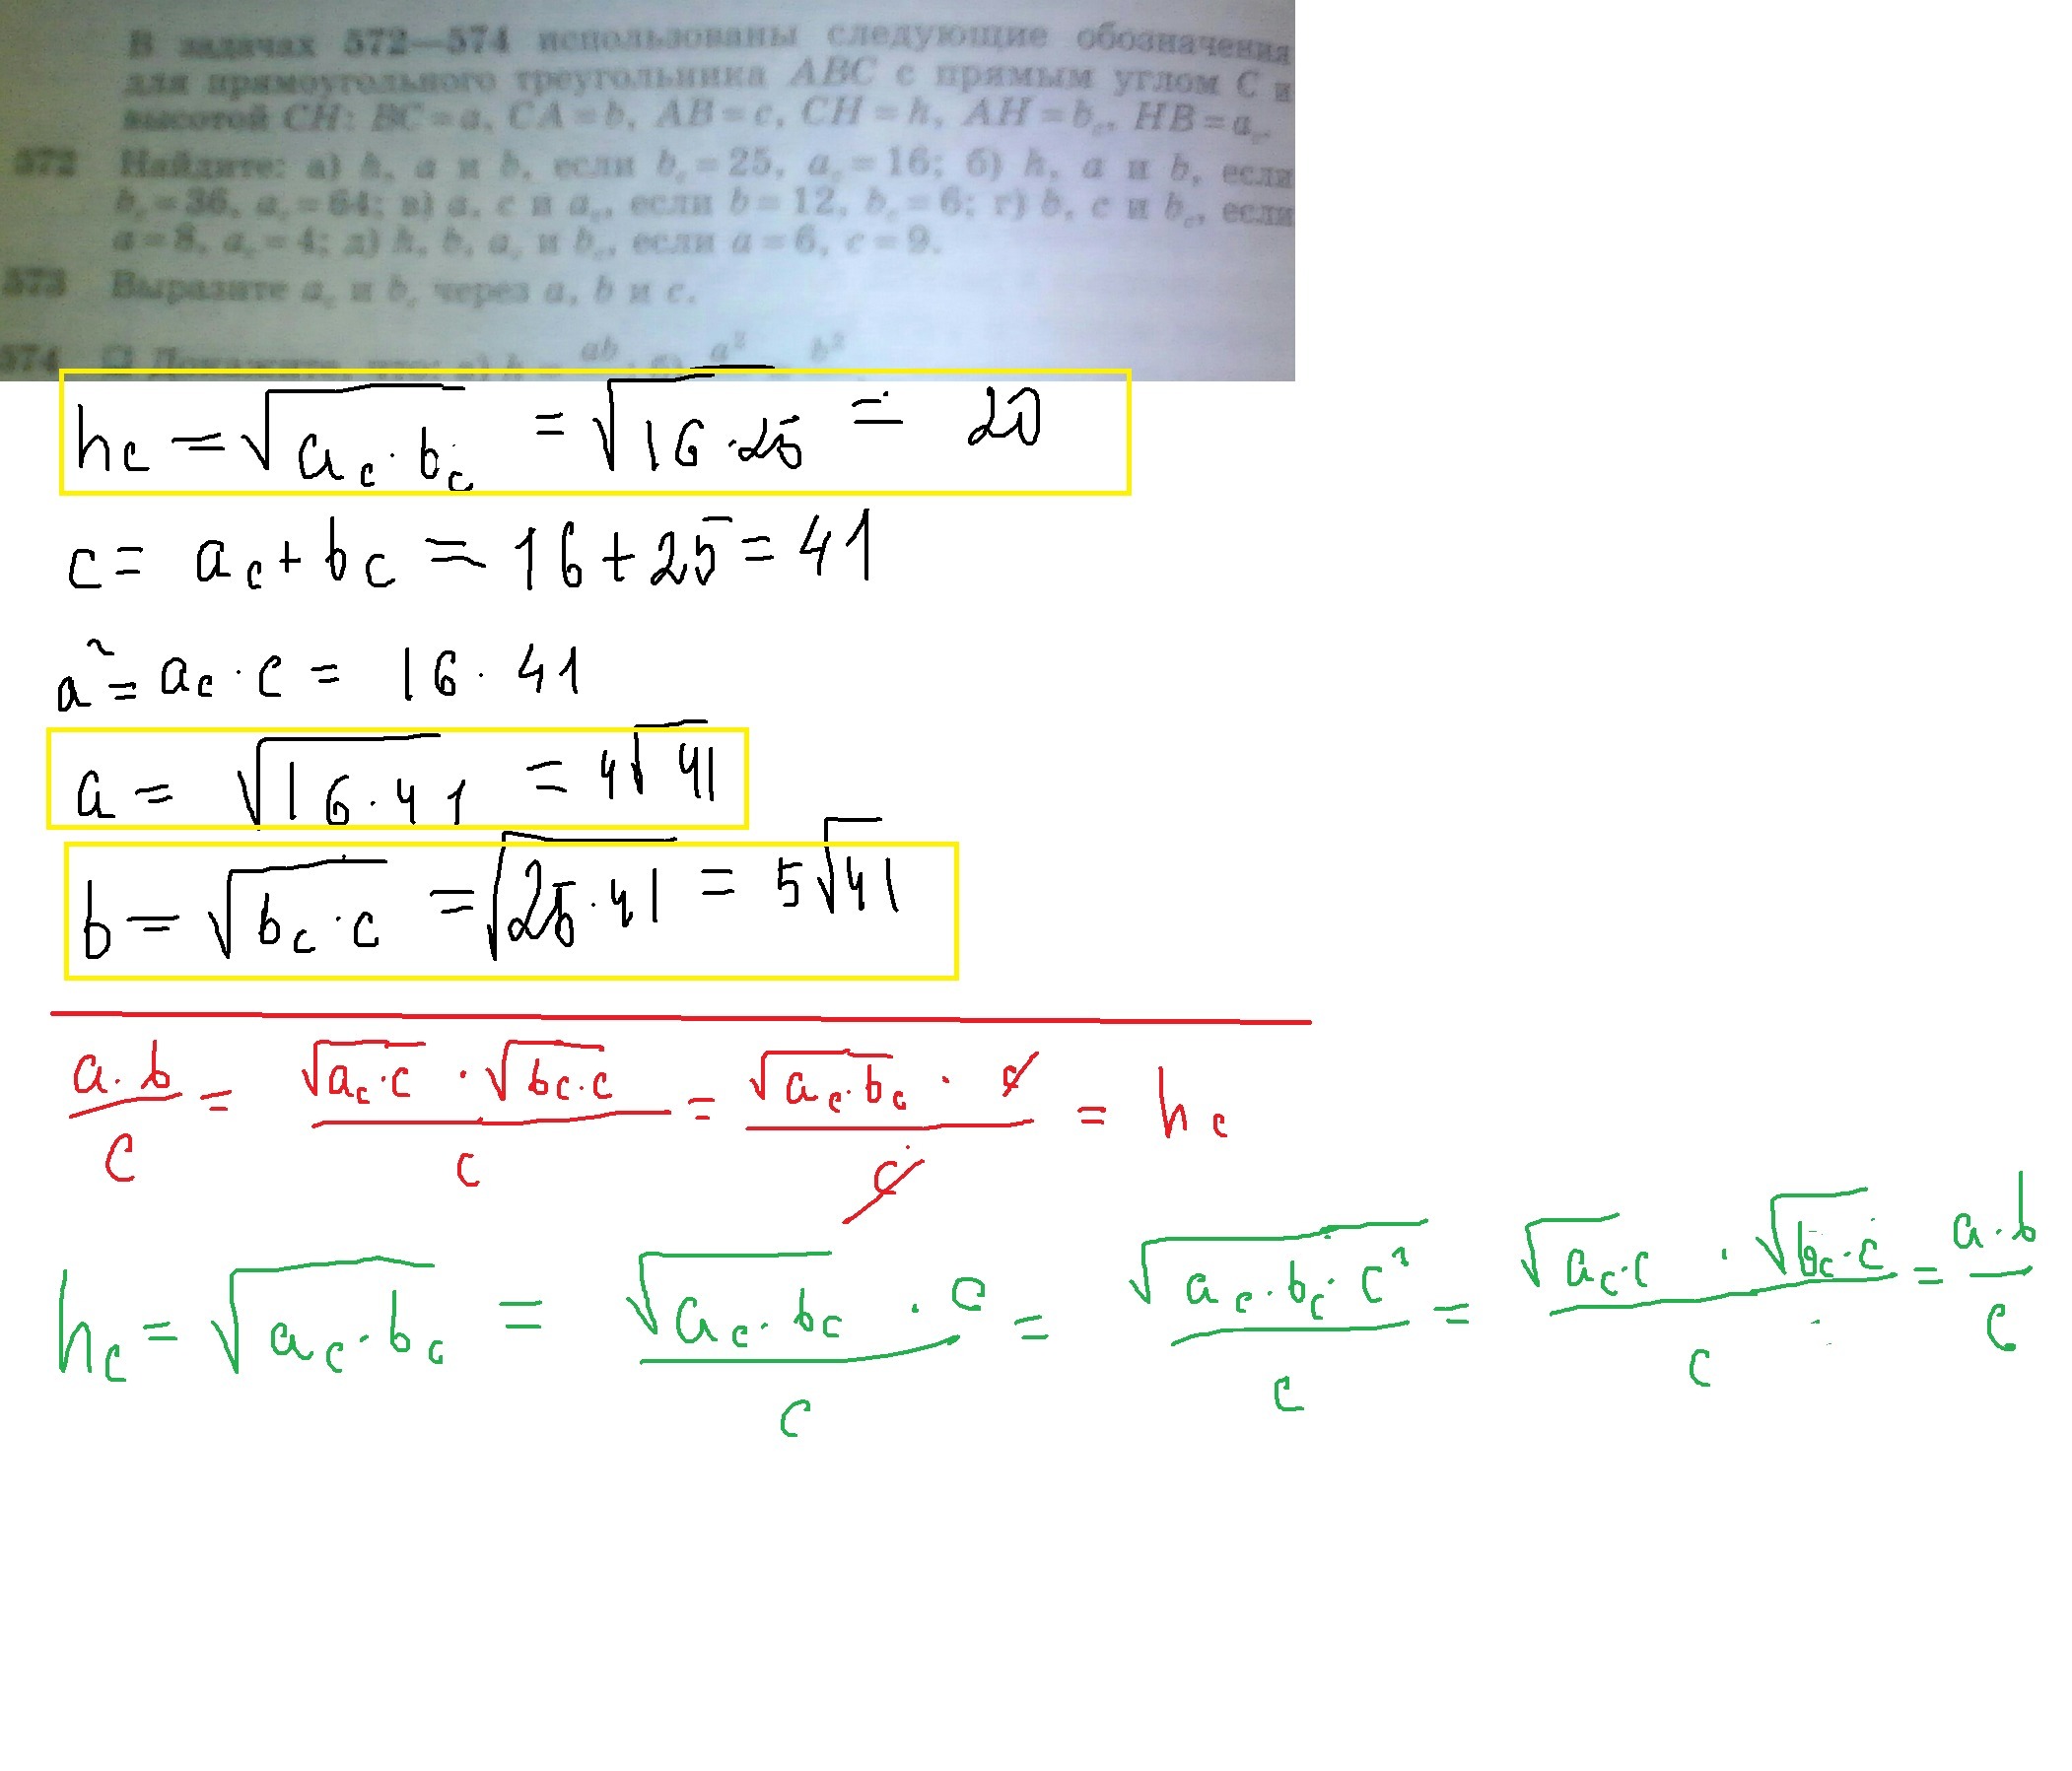 В задачах 572—574 использованы следующие обозначения
для прямоугольного треугольника ABC с прямым углом C и
высотой CH: BC = a, CA = b, AB = c, CH = h, AH = b_c, HB = a_c.
572 Найдите: а) h, a и b, если b_c = 25, a_c = 16; б) h, a и b, если
b_c = 36, a_c = 64; в) a, c и a_c, если b = 12, b_c = 6; г) b, c и b_c, если
a = 8, a_c = 4; д) h, b, a_c и b_c, если a = 6, c = 9.
573 Выразите a_c и b_c через a, b и c.
574 Докажите, что: а) h = ab ; б) a² = b²
h_c = √(a_c · b_c) = √(16 · 25) = 20
c = a_c + b_c = 16 + 25 = 41
a² = a_c · c = 16 · 41
a = √(16 · 41) = 4√41
b = √(b_c · c) = √(25 · 41) = 5√41
a · b / c = √(a_c · c) · √(b_c · c) / c = √(a_c · b_c) · c / c = h_c
h_c = √(a_c · b_c) = √(a_c · b_c) · c / c = √(a_c · b_c · c²) / c = √(a_c · c) · √(b_c · c) / c = a · b / c